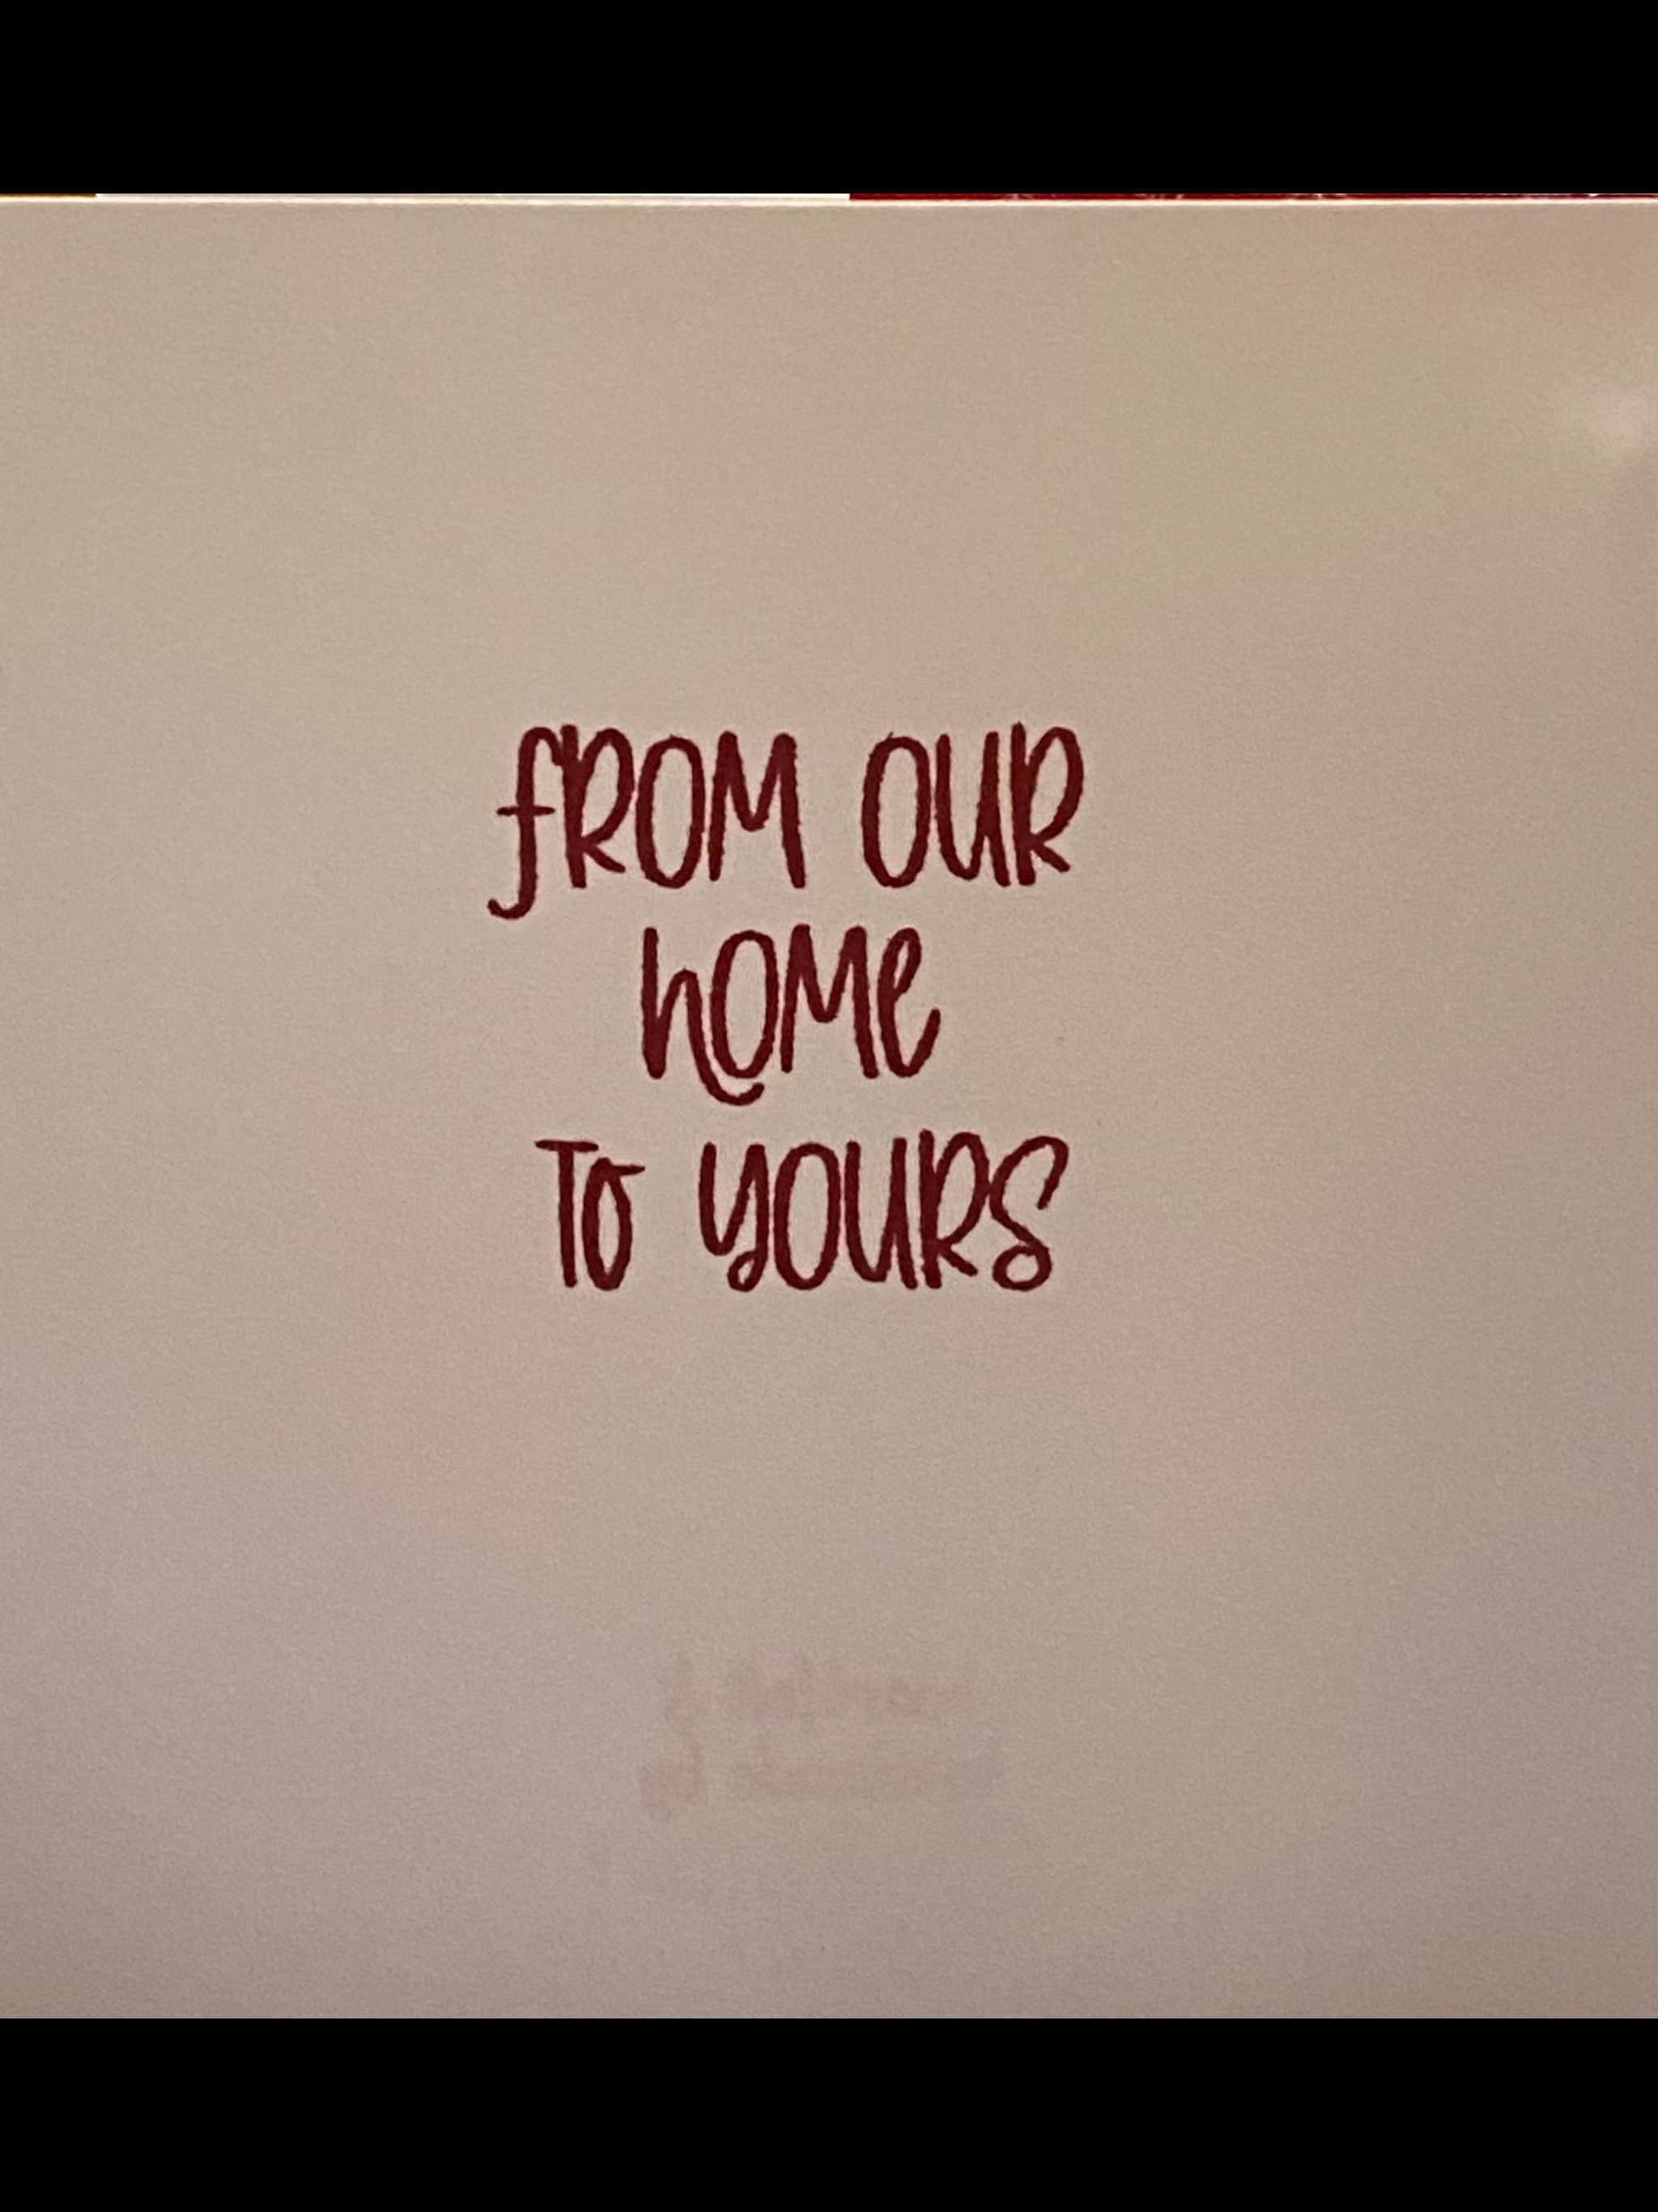 fROM OUR
hOMe
TO YOURS